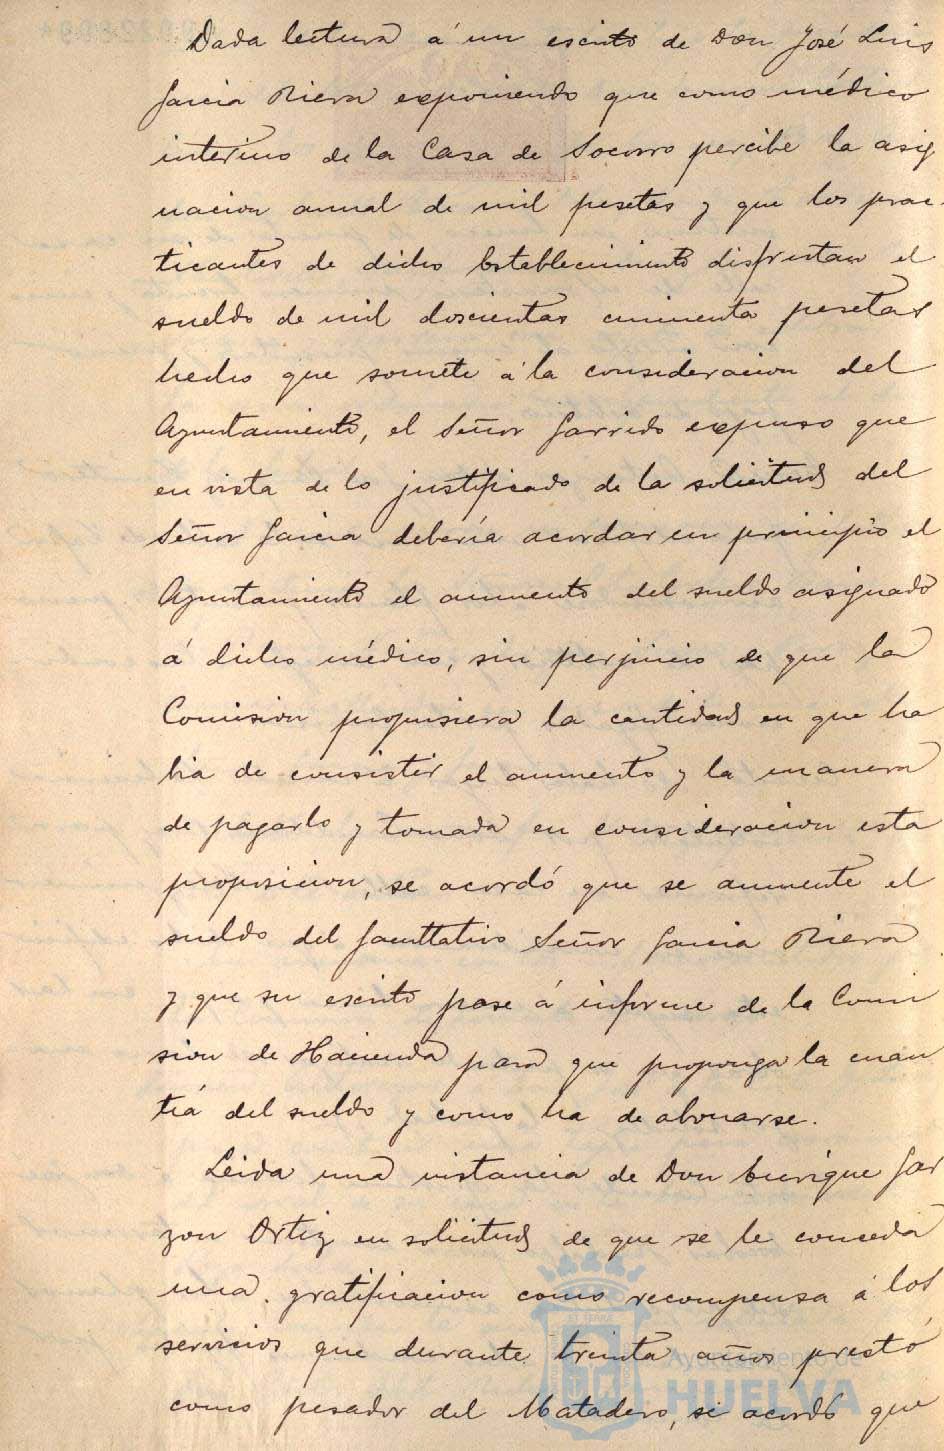 Dada lectura á un escrito de Don José Luis
Garcia Riera exponiendo que como médico
interino de la Casa de Socorro percibe la asig
nacion anual de mil pesetas y que los prac-
ticantes de dicho Establecimiento disfrutan el
sueldo de mil doscientas cincuenta pesetas
hecho que somete á la consideracion del
Ayuntamiento, el Señor Garrido expuso que
en vista de lo justificado de la solicitud del
Señor Garcia debería acordar en principio el
Ayuntamiento el aumento del sueldo asignado
á dicho médico, sin perjuicio de que la
Comision propusiera la cantidad en que ha
bia de consistir el aumento y la manera
de pagarlo y tomada en consideracion esta
proposicion, se acordó que se aumente el
sueldo del facultativo Señor Garcia Riera
y que su escrito pase á informe de la Comi
sion de Hacienda para que proponga la cuan
tía del sueldo y como ha de abonarse.
Leida una instancia de Don Enrique Gar
zon Ortiz en solicitud de que se le conceda
una gratificacion como recompensa á los
servicios que durante treinta años prestó
como pesador del Matadero, se acordó que
Ayuntamiento de
HUELVA